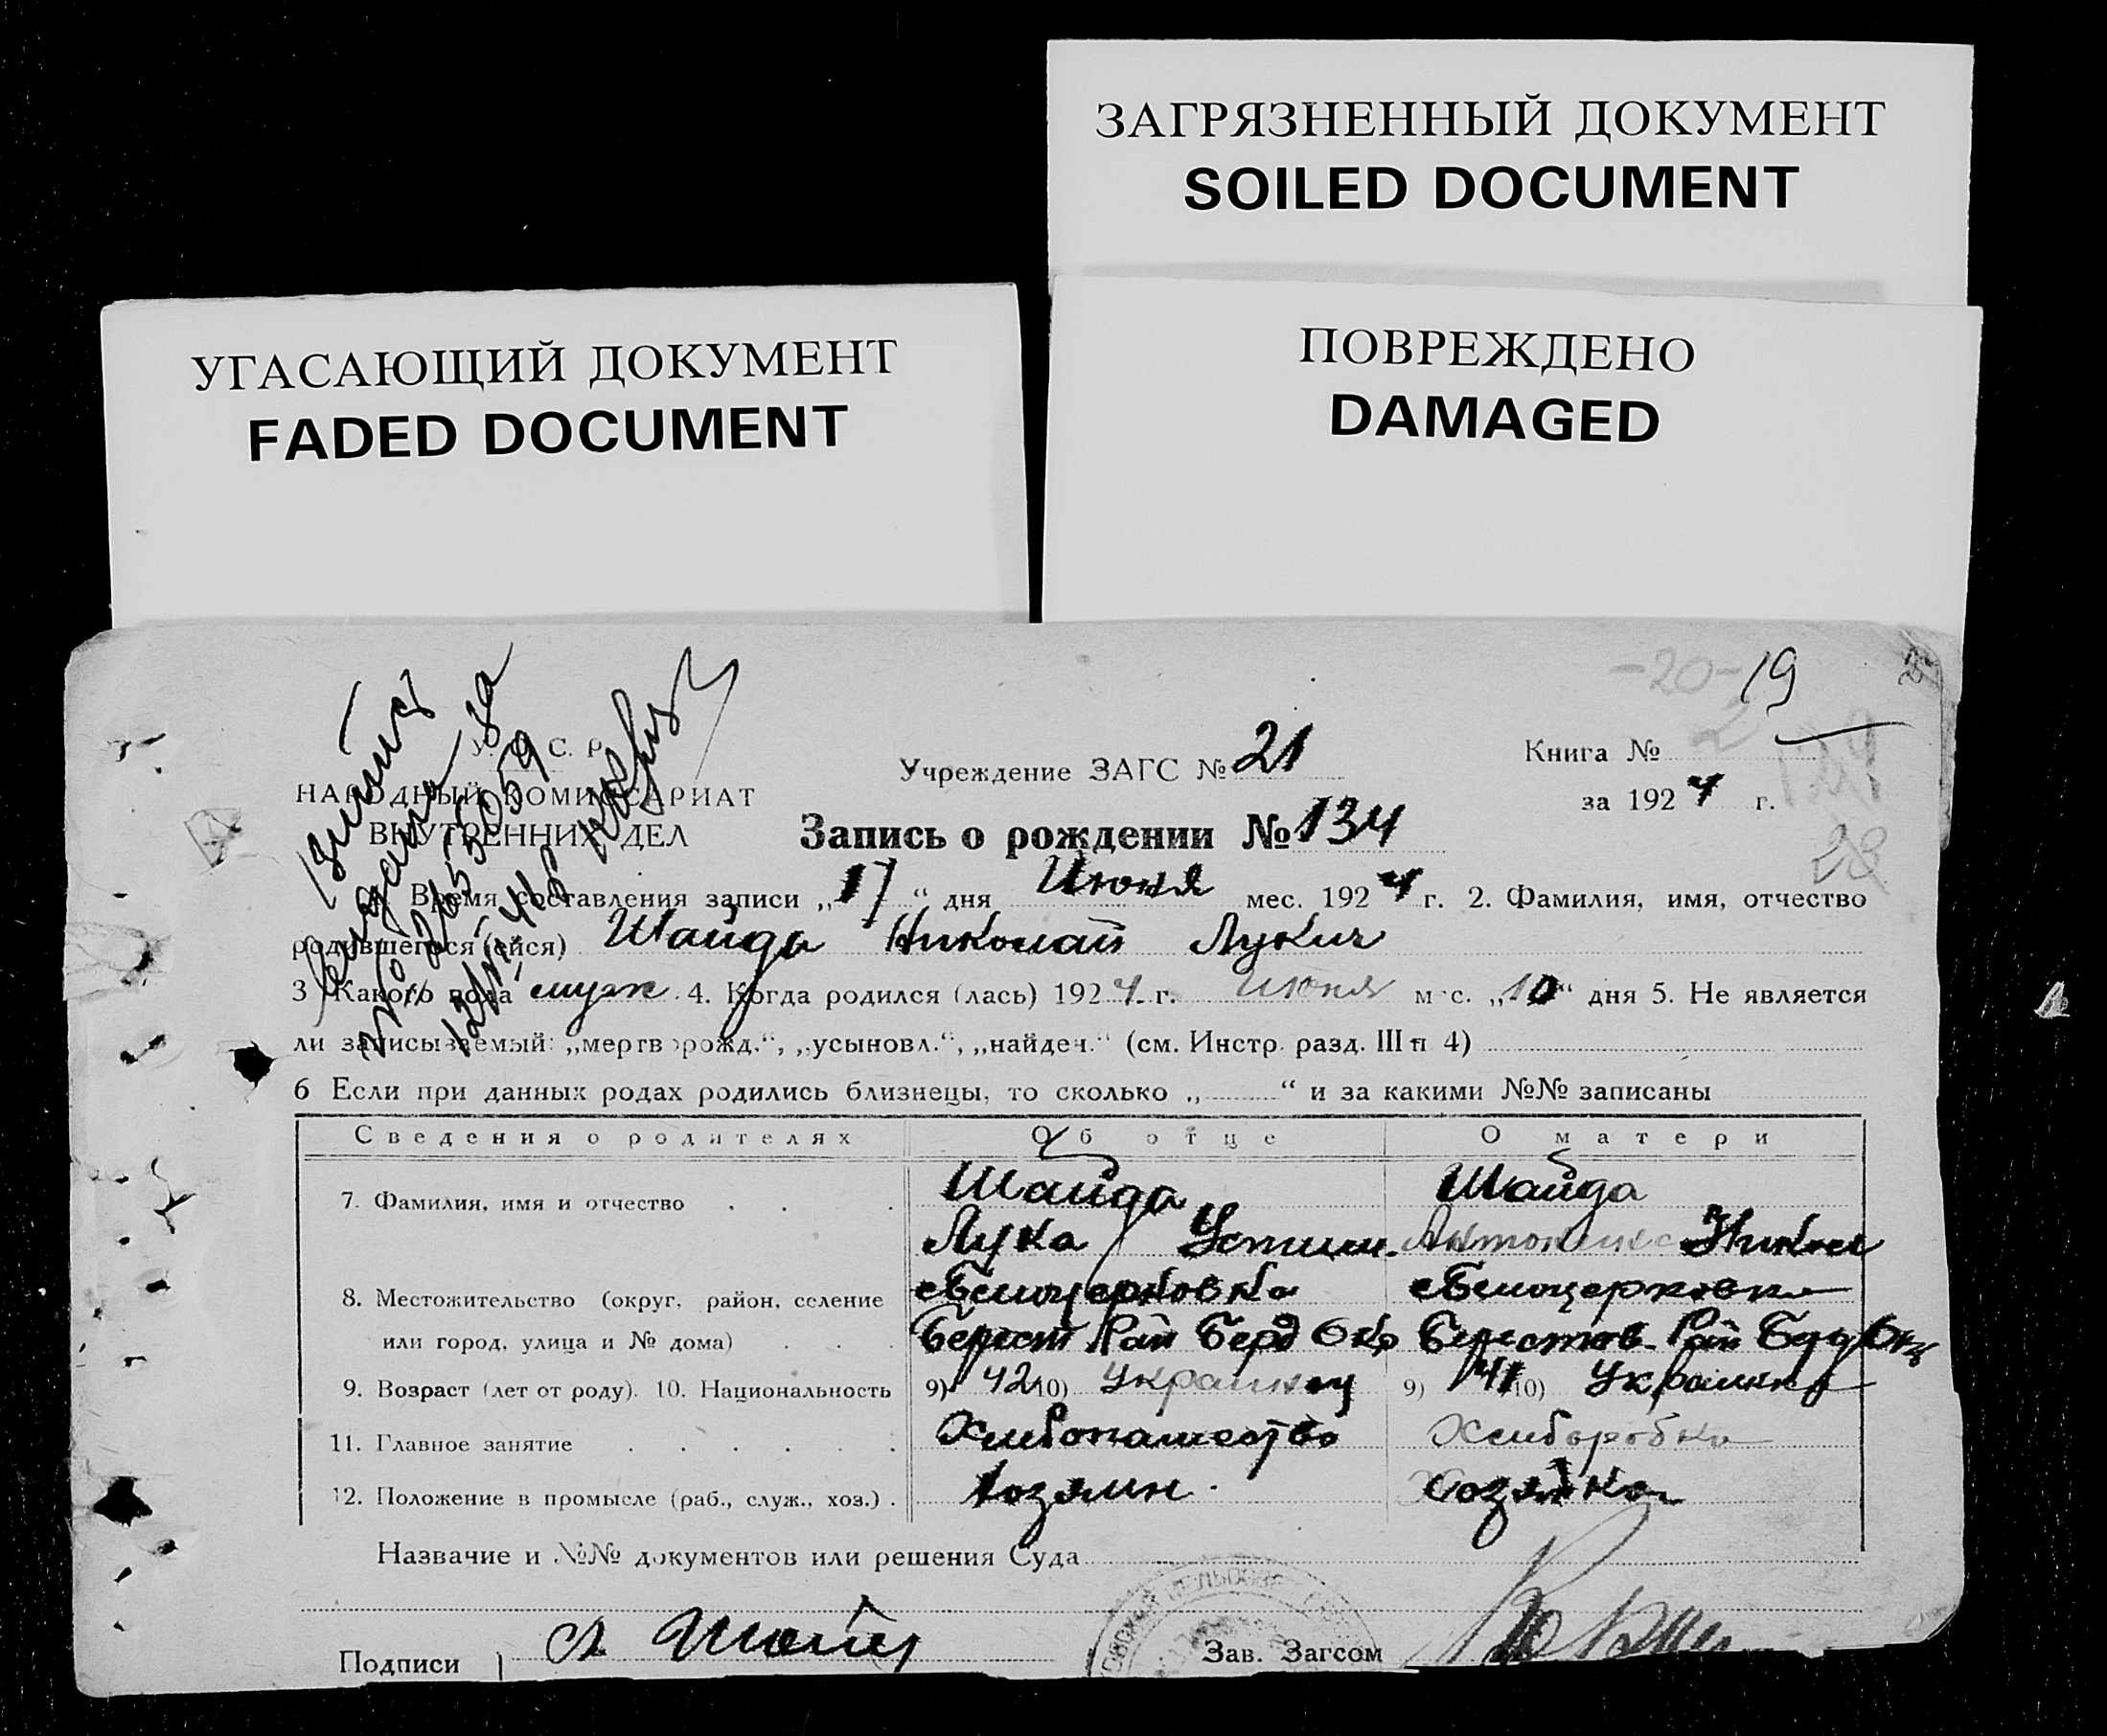 ЗАГРЯЗНЕННЫЙ ДОКУМЕНТ
SOILED DOCUMENT
УГАСАЮЩИЙ ДОКУМЕНТ
FADED DOCUMENT
ПОВРЕЖДЕНО
DAMAGED
-20- 19
У. С. С. Р.
НАРОДНЫЙ КОМИССАРИАТ
ВНУТРЕННИХ ДЕЛ
Учреждение ЗАГС № 21
Книга №
за 1924 г.
28
Запись о рождении № 134
Время составления записи „17“ дня Июня мес. 1924 г. 2. Фамилия, имя, отчество
родившегося (ейся) Шайда Николай Лукич
3 Какого пола муж. 4. Когда родился (лась) 1924 г. июня мес. „10“ дня 5. Не является
ли записываемый: „мертворожд.“, „усыновл.“, „найден.“ (см. Инстр. разд. III п 4)
6 Если при данных родах родились близнецы, то сколько „ “ и за какими №№ записаны
Сведения о родителях Об отце О матери
7. Фамилия, имя и отчество Шайда Шайда
Лука Устим.
8. Местожительство (округ, район, селение с Белоцерковка с Белоцерковка
или город, улица и № дома) Берест Рай Берд Окр Берестов. Рай Берд Окр
9. Возраст (лет от роду). 10. Национальность 9) 42 10) Украинец 9) 41 10) Украинка
11. Главное занятие Хлебопашество Хлеборобка
12. Положение в промысле (раб., служ., хоз.) . Хозяин. Хозяйка
Название и №№ документов или решения Суда
Подписи Зав. Загсом